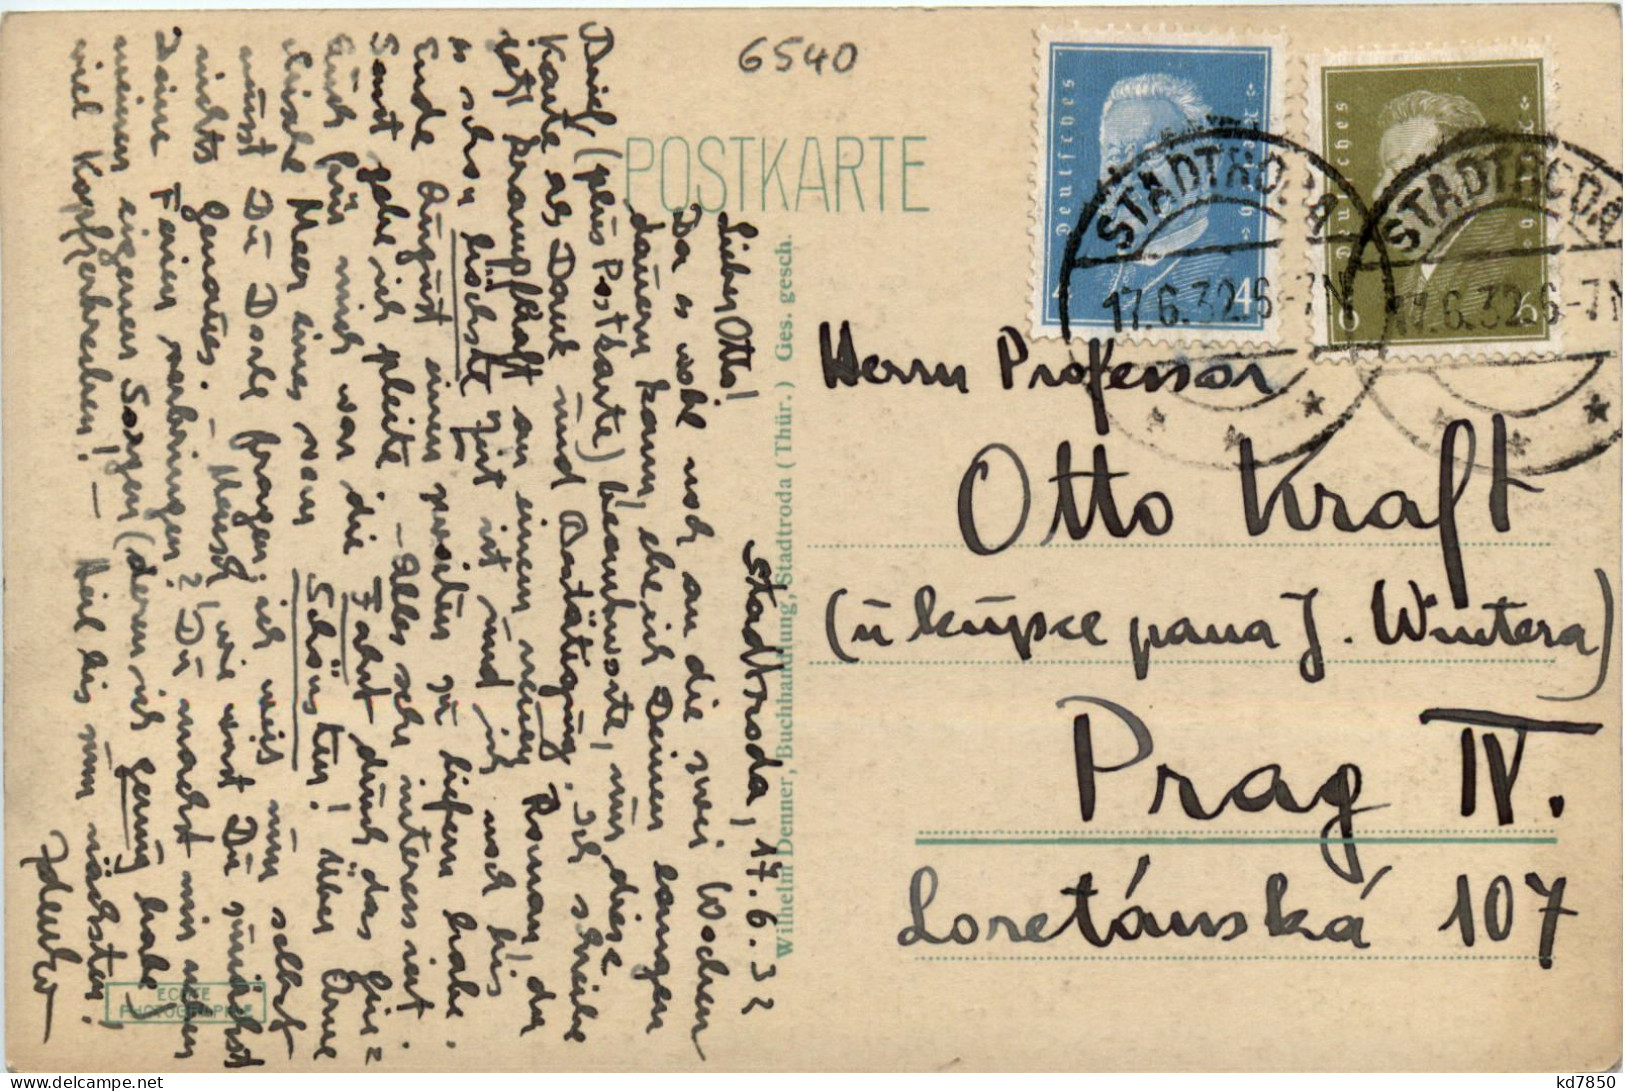 6540
POSTKARTE
Deutsches Reich
4
Deutsches Reich
6 6
STADTRODA
17.6.32.6-7N
STADTRODA
17.6.32.6-7N
Herrn Professor
Otto Kraft
(u kupce pana J. Wintera)
Prag IV.
Loretánská 107
Wilhelm Denner, Buchhandlung, Stadtroda (Thür.) Ges. gesch.
ECHTE
PHOTOGRAPHIE
Stadtroda, 17.6.32
Lieber Otto!
Da es wohl noch an die zwei Wochen
dauern kann, ehe ich Deinen langen
Brief (plus Postkarte) beantworte, nur diese
Karte als Dank und Bestätigung. Ich schreibe
jetzt krampfhaft an einem neuen Roman, da
es schon höchste Zeit ist und ich noch bis
Ende August einen zweiten zu liefern habe.
Sonst gehe ich pleite. – Alles sehr interessant.
Auch für mich war die Fahrt durch das
Meer eines vom Schönsten! Über Deine
musst Du Dorle fragen, ich weis nun selbst
nichts Genaues. – Mensch, wie wirst Du zunächst
Deine Ferien verbringen? Du machst mir neben
meinen eigenen Sorgen (deren ich genug habe)
viel Kopfzerbrechen! – Heil bis zum nächsten!
kd7850